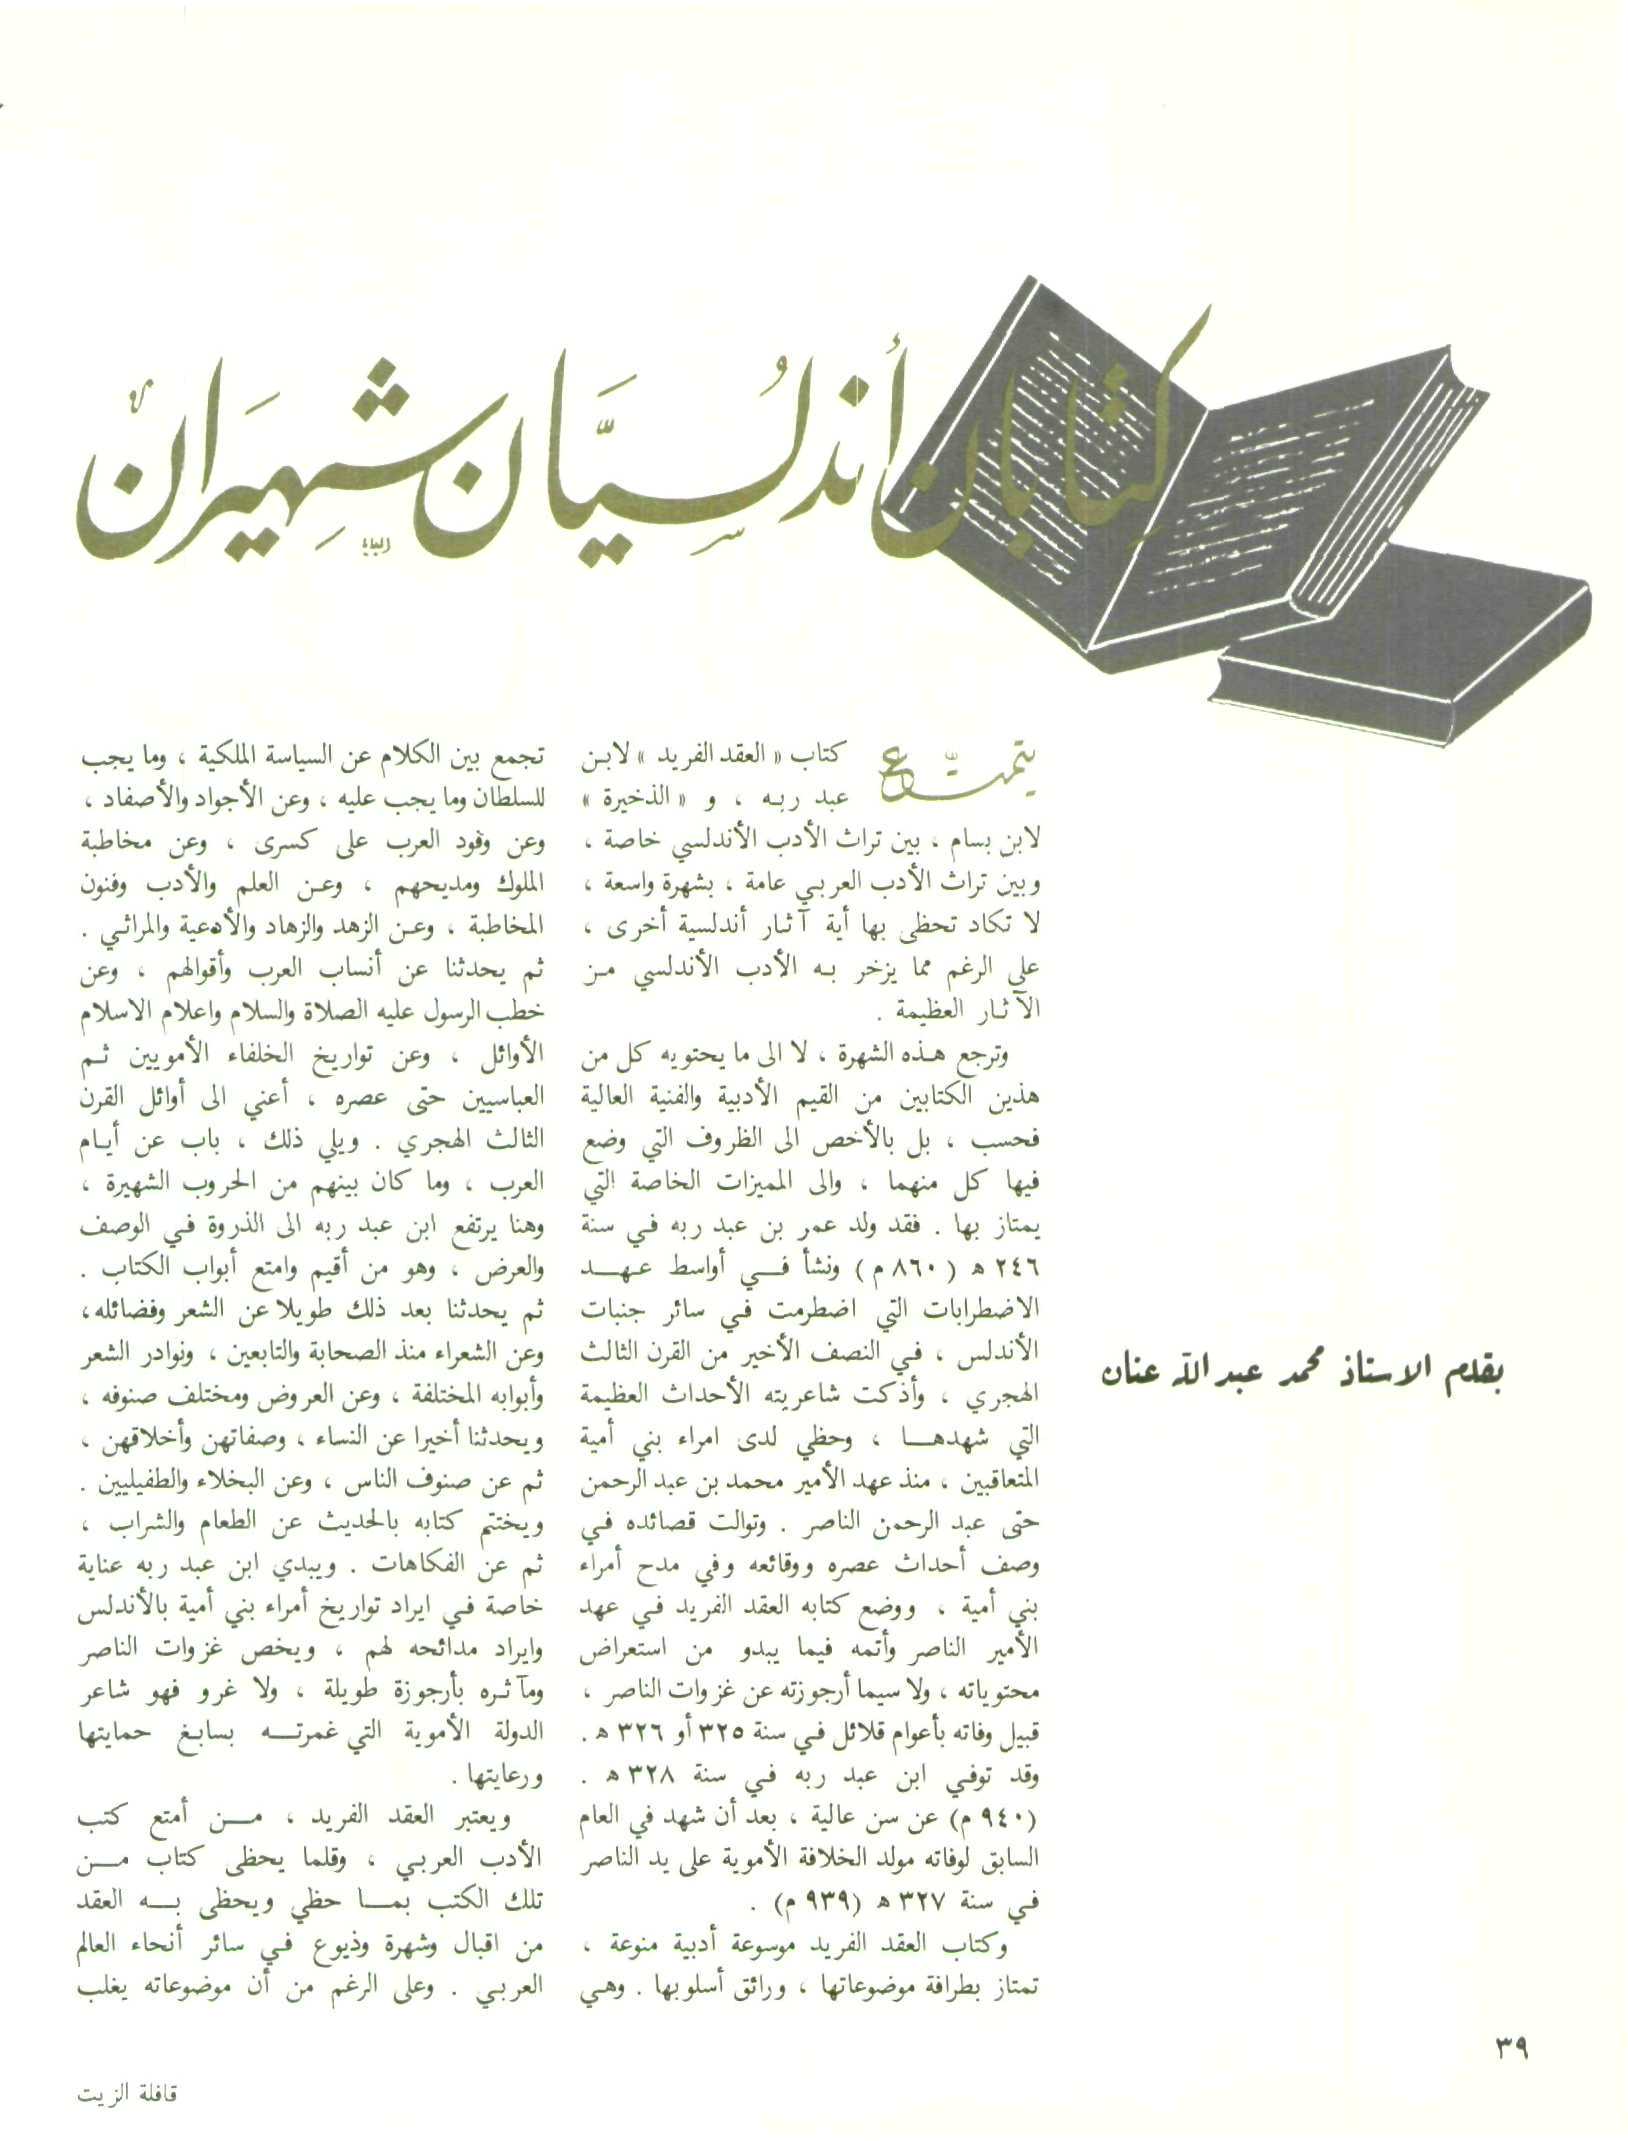 كتابان أندلسيان شهيران
بقلم الاستاذ محمد عبد الله عنان
يتمتّع كتاب « العقد الفريد » لابن
عبد ربه ، و « الذخيرة »
لابن بسام ، بين تراث الأدب الأندلسي خاصة ،
وبين تراث الأدب العربي عامة ، بشهرة واسعة ،
لا تكاد تحظى بها أية آثار أندلسية أخرى ،
على الرغم مما يزخر به الأدب الأندلسي من
الآثار العظيمة .
وترجع هذه الشهرة ، لا الى ما يحتويه كل من
هذين الكتابين من القيم الأدبية والفنية العالية
فحسب ، بل بالأخص الى الظروف التي وضع
فيها كل منهما ، والى المميزات الخاصة التي
يمتاز بها . فقد ولد عمر بن عبد ربه في سنة
٢٤٦ ه (٨٦٠ م) ونشأ في أواسط عهد
الاضطرابات التي اضطرمت في سائر جنبات
الأندلس ، في النصف الأخير من القرن الثالث
الهجري ، وأذكت شاعريته الأحداث العظيمة
التي شهدها ، وحظي لدى امراء بني أمية
المتعاقبين ، منذ عهد الأمير محمد بن عبد الرحمن
حتى عبد الرحمن الناصر . وتوالت قصائده في
وصف أحداث عصره ووقائعه وفي مدح أمراء
بني أمية ، ووضع كتابه العقد الفريد في عهد
الأمير الناصر وأتمه فيما يبدو من استعراض
محتوياته ، ولا سيما أرجوزته عن غزوات الناصر ،
قبيل وفاته بأعوام قلائل في سنة ٣٢٥ أو ٣٢٦ ه .
وقد توفي ابن عبد ربه في سنة ٣٢٨ ه .
(٩٤٠ م) عن سن عالية ، بعد أن شهد في العام
السابق لوفاته مولد الخلافة الأموية على يد الناصر
في سنة ٣٢٧ ه (٩٣٩ م) .
وكتاب العقد الفريد موسوعة أدبية منوعة ،
تمتاز بطرافة موضوعاتها ، ورائق أسلوبها . وهي
تجمع بين الكلام عن السياسة الملكية ، وما يجب
للسلطان وما يجب عليه ، وعن الأجواد والأصفاد ،
وعن وفود العرب على كسرى ، وعن مخاطبة
الملوك ومديحهم ، وعن العلم والأدب وفنون
المخاطبة ، وعن الزهد والزهاد والأدعية والمراثي .
ثم يحدثنا عن أنساب العرب وأقوالهم ، وعن
خطب الرسول عليه الصلاة والسلام واعلام الاسلام
الأوائل ، وعن تواريخ الخلفاء الأمويين ثم
العباسيين حتى عصره ، أعني الى أوائل القرن
الثالث الهجري . ويلي ذلك ، باب عن أيام
العرب ، وما كان بينهم من الحروب الشهيرة ،
وهنا يرتفع ابن عبد ربه الى الذروة في الوصف
والعرض ، وهو من أقيم وامتع أبواب الكتاب .
ثم يحدثنا بعد ذلك طويلا عن الشعر وفضائله،
وعن الشعراء منذ الصحابة والتابعين ، ونوادر الشعر
وأبوابه المختلفة ، وعن العروض ومختلف صنوفه ،
ويحدثنا أخيرا عن النساء ، وصفاتهن وأخلاقهن ،
ثم عن صنوف الناس ، وعن البخلاء والطفيليين .
ويختتم كتابه بالحديث عن الطعام والشراب ،
ثم عن الفكاهات . ويبدي ابن عبد ربه عناية
خاصة في ايراد تواريخ أمراء بني أمية بالأندلس
وايراد مدائحه لهم ، ويخص غزوات الناصر
ومآثره بأرجوزة طويلة ، ولا غرو فهو شاعر
الدولة الأموية التي غمرته بسابغ حمايتها
ورعايتها .
ويعتبر العقد الفريد ، من أمتع كتب
الأدب العربي ، وقلما يحظى كتاب من
تلك الكتب بما حظي ويحظى به العقد
من اقبال وشهرة وذيوع في سائر أنحاء العالم
العربي . وعلى الرغم من أن موضوعاته يغلب
٣٩
قافلة الزيت